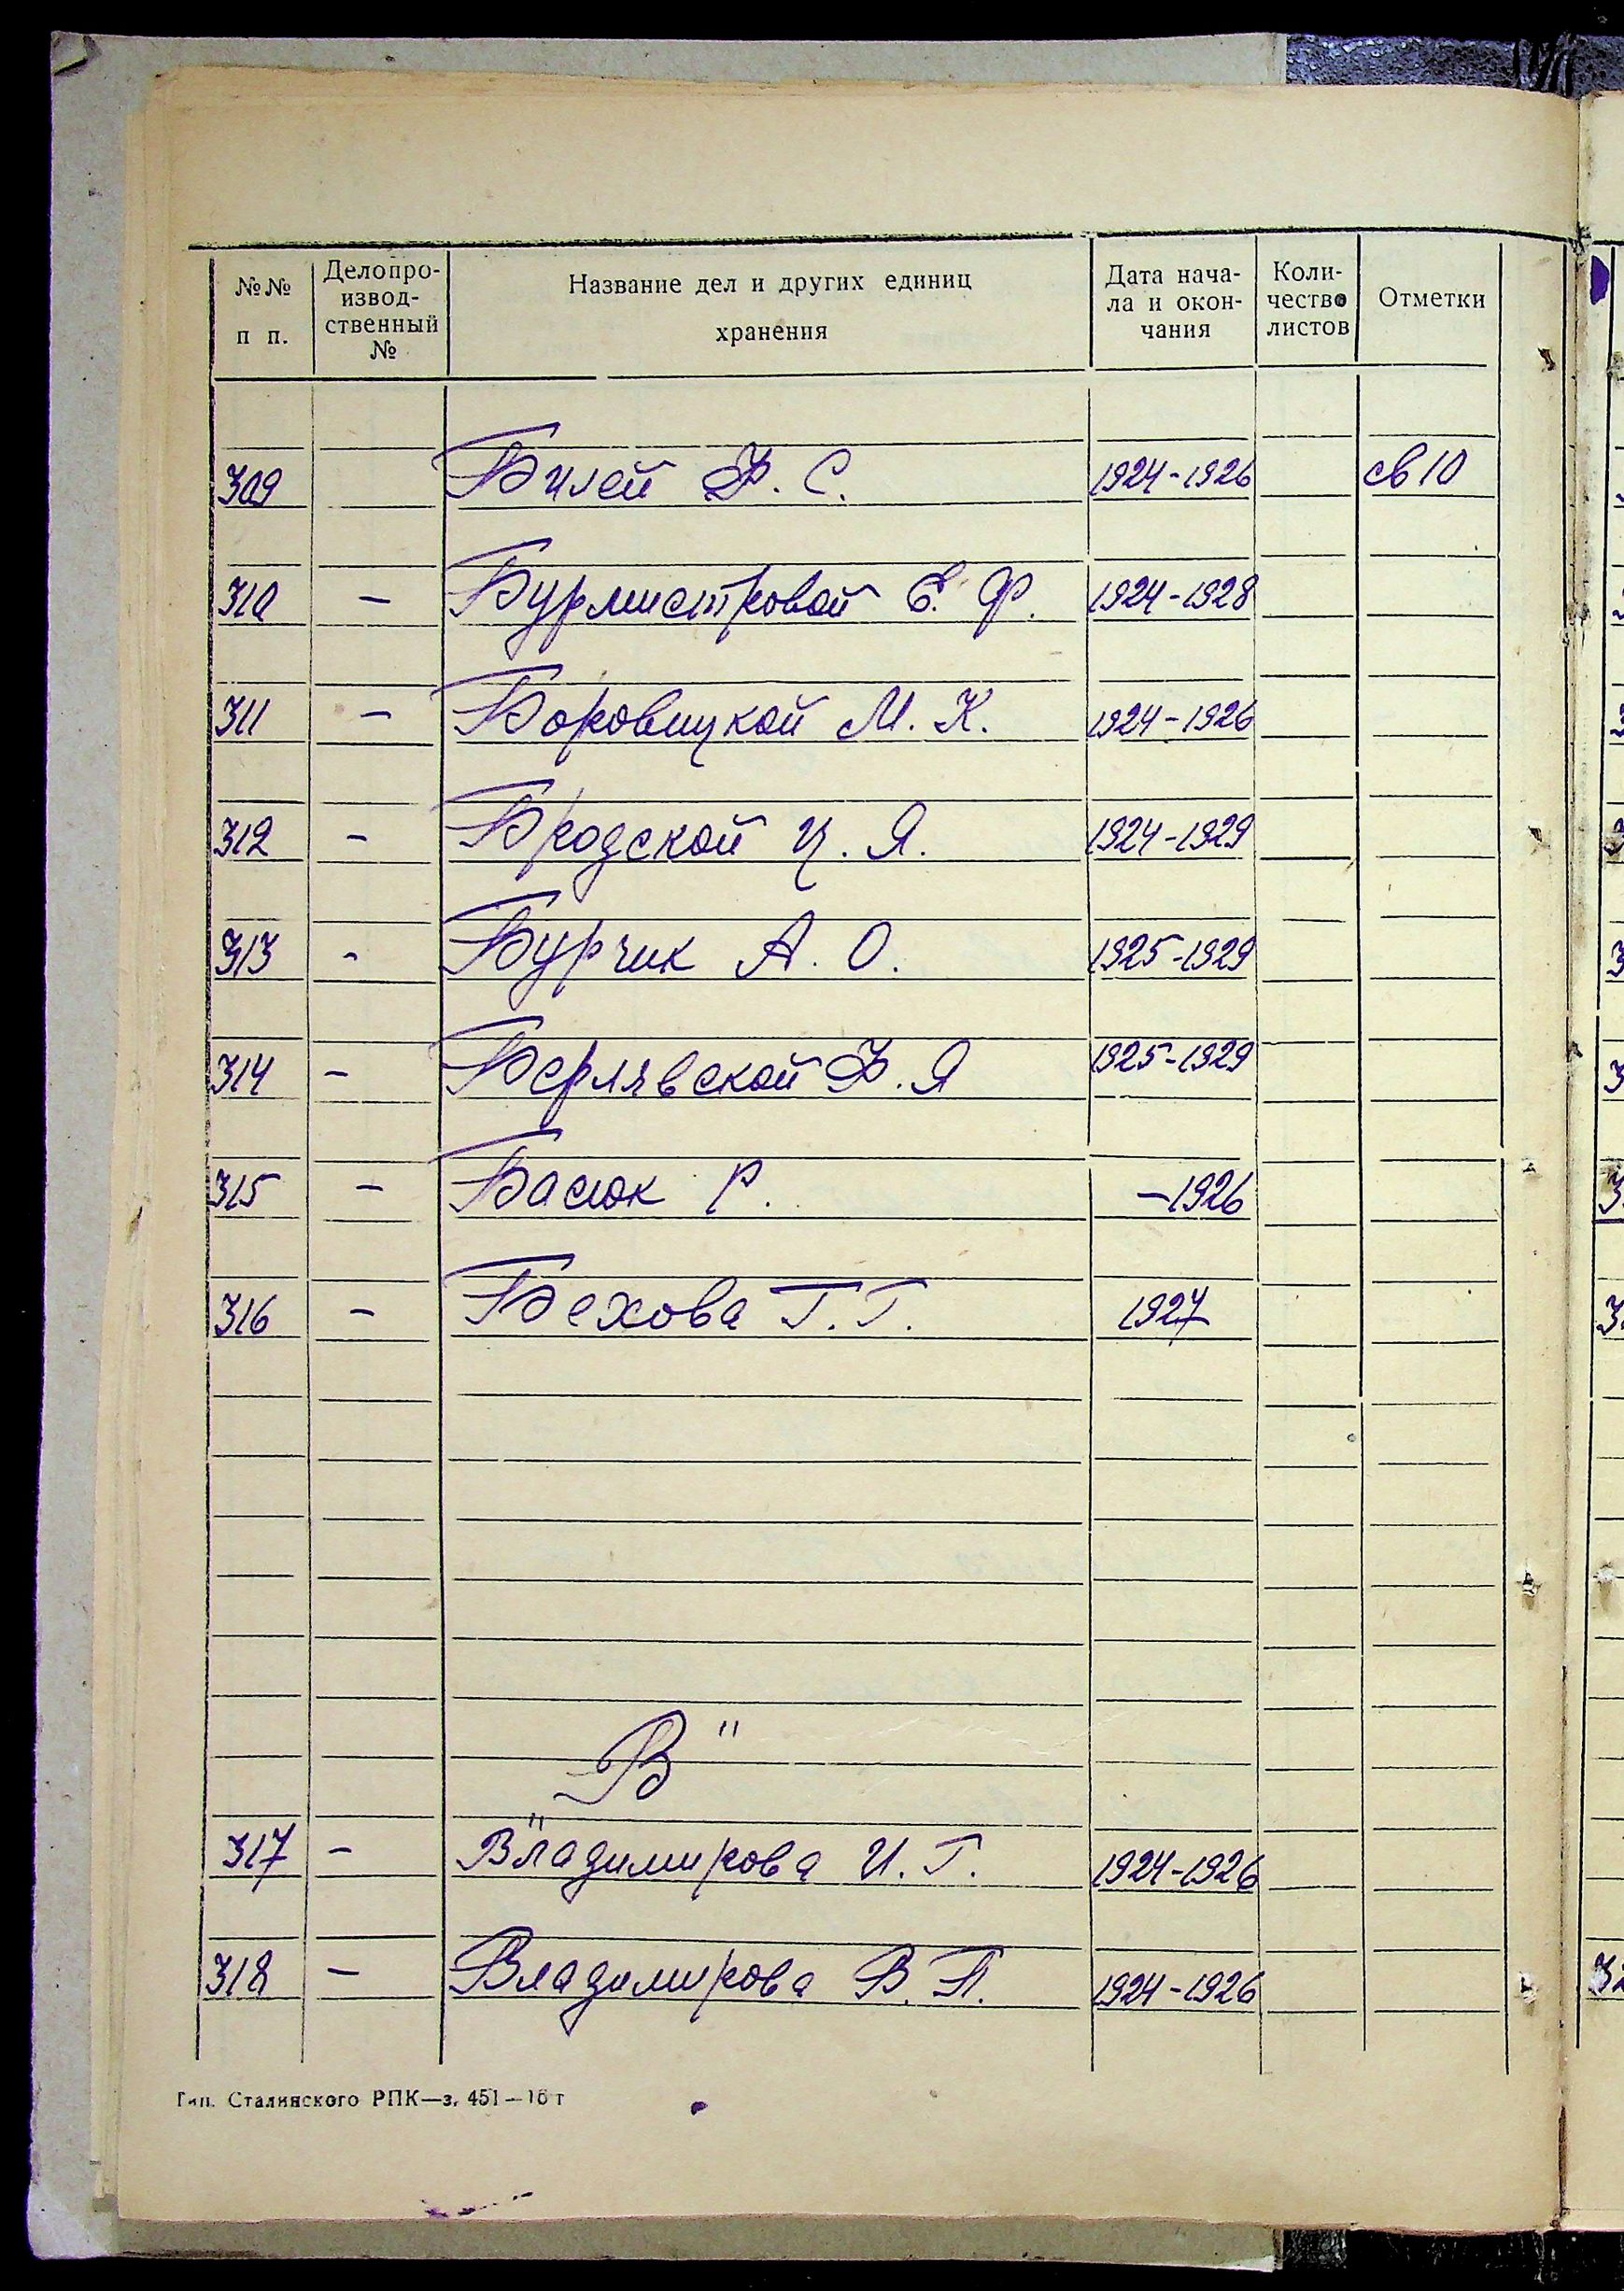 №№ п п. Делопро-извод-ственный № Название дел и других единиц хранения Дата нача-ла и окон-чания Коли-чество листов Отметки
309 Билей Ф. С. 1924-1926 св 10
310 — Бурмистровой Е. Ф. 1924-1928
311 — Боровицкой М. К. 1924-1926
312 — Бродской Ц. Я. 1924-1929
313 - Бурчик А. О. 1925-1929
314 — Берлявской Ф. Я 1925-1929
315 — Басюк Р. —1926
316 — Бехова Г. Г. 1927
„В"
317 — Владимирова И. Г. 1924-1926
318 — Владимирова В. П. 1924-1926
Тип. Сталинского РПК—з. 451—16 т